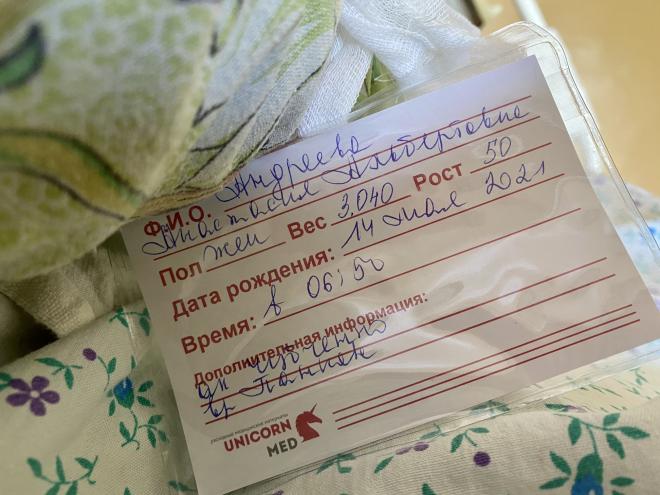 Ф.И.О. Андреева
Анастасия Альбертовна
Пол жен Вес 3.040 Рост 50
Дата рождения: 14 мая 2021
Время: в 06:50
Дополнительная информация:
расходные медицинские материалы
UNICORN
MED